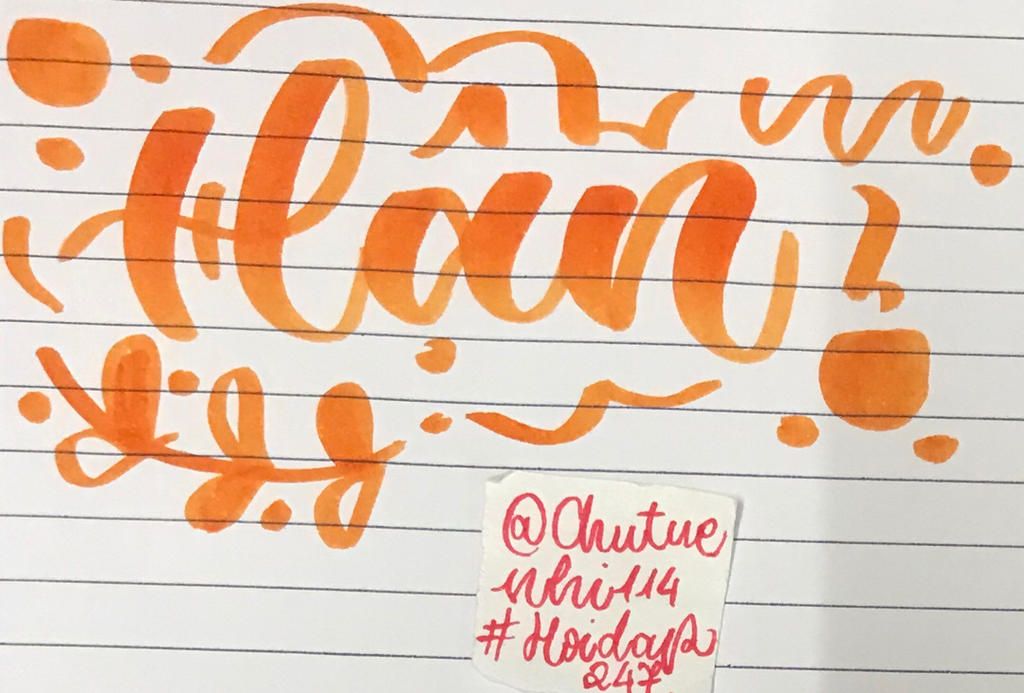 Hân
@Chutue
nhi114
#Hoidap
247